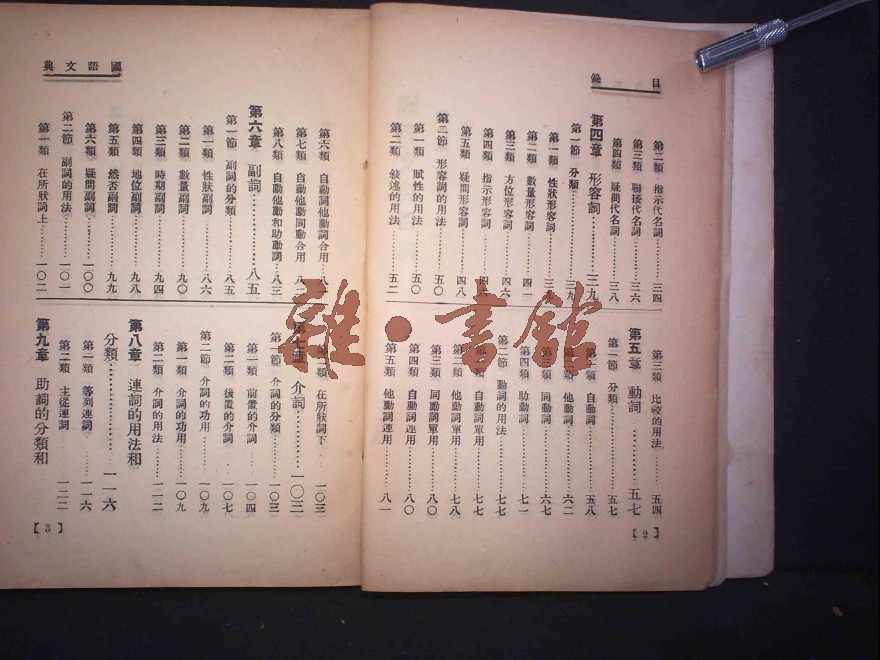 目錄
第二類 指示代名詞……三四
第三類 聯接代名詞……三六
第四類 疑問代名詞……三八
第四章 形容詞……三九
第一節 分類……三九
第一類 性狀形容詞……三九
第二類 數量形容詞……四一
第三類 方位形容詞……四六
第四類 指示形容詞……四六
第五類 疑問形容詞……四八
第二節 形容詞的用法……五〇
第一類 賦性的用法……五〇
第二類 敍述的用法……五二
第三類 比較的用法……五四
第五章 動詞……五七
第一節 分類……五七
第一類 自動詞……五八
第二類 他動詞……六二
第三類 同動詞……六七
第四類 助動詞……七一
第二節 動詞的用法……七七
第一類 自動詞單用……七七
第二類 他動詞單用……七八
第三類 同動詞單用……八〇
第四類 自動詞連用……八〇
第五類 他動詞連用……八一
【2】
國語文典
第六類 自動詞他動詞合用……八
第七類 自動他動同動合用……八
第八類 自動他動和助動詞……八三
第六章 副詞……八五
第一節 副詞的分類……八五
第一類 性狀副詞……八六
第二類 數量副詞……九〇
第三類 時期副詞……九四
第四類 地位副詞……九八
第五類 然否副詞……九九
第六類 疑問副詞……一〇〇
第二節 副詞的用法……一〇一
第一類 在所狀詞上……一〇二
第二類 在所狀詞下……一〇三
第七章 介詞……一〇三
第一節 介詞的分類……一〇三
第一類 前置的介詞……一〇四
第二類 後置的介詞……一〇七
第二節 介詞的功用……一〇九
第一類 介詞的功用……一〇九
第二類 介詞的用法……一一二
第八章 連詞的用法和
分類……一一六
第一類 等列連詞……一一六
第二類 主從連詞……一二二
第九章 助詞的分類和
【3】
雜·書館